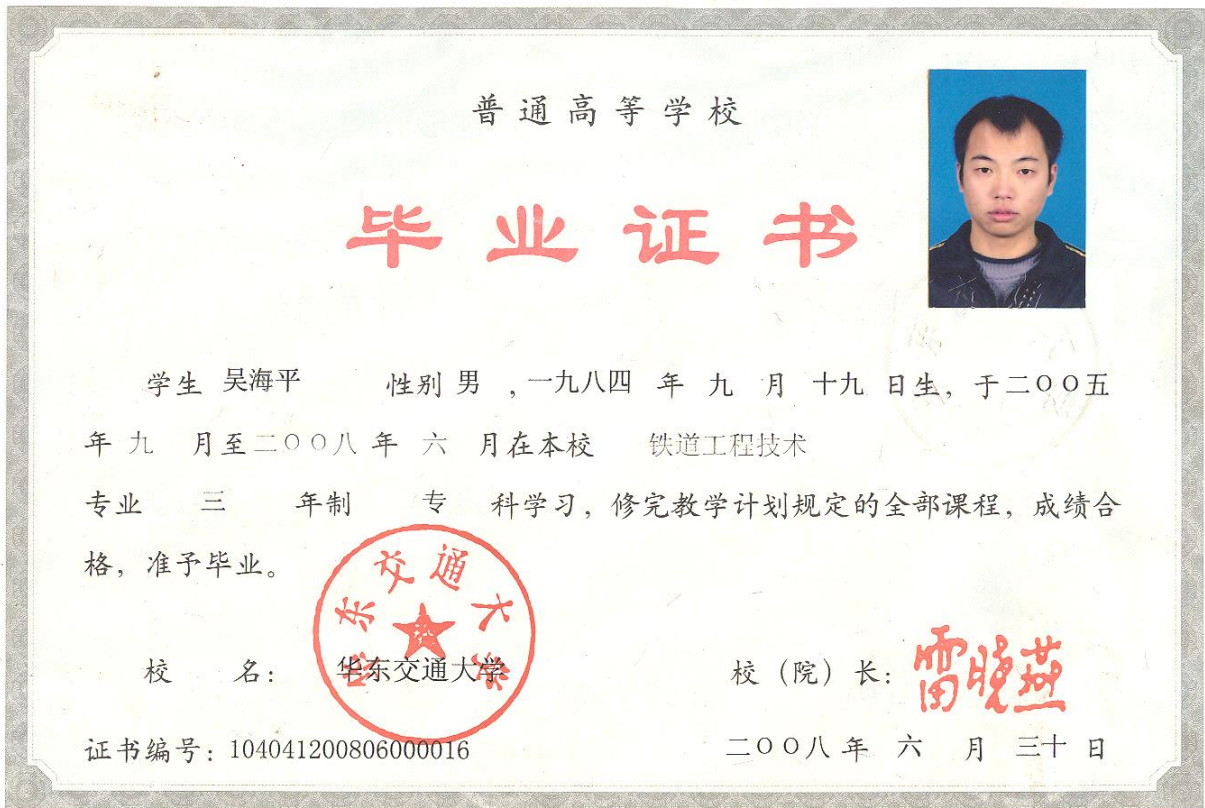 普通高等学校
毕业证书
学生 吴海平 性别 男 ，一九八四 年 九 月 十九 日生，于二〇〇五
年 九 月至二〇〇八 年 六 月在本校 铁道工程技术
专业 三 年制 专 科学习，修完教学计划规定的全部课程，成绩合
格，准予毕业。
华东交通大学
校 名： 华东交通大学 校（院）长： 雷晓燕
证书编号：104041200806000016 二〇〇八 年 六 月 三十 日